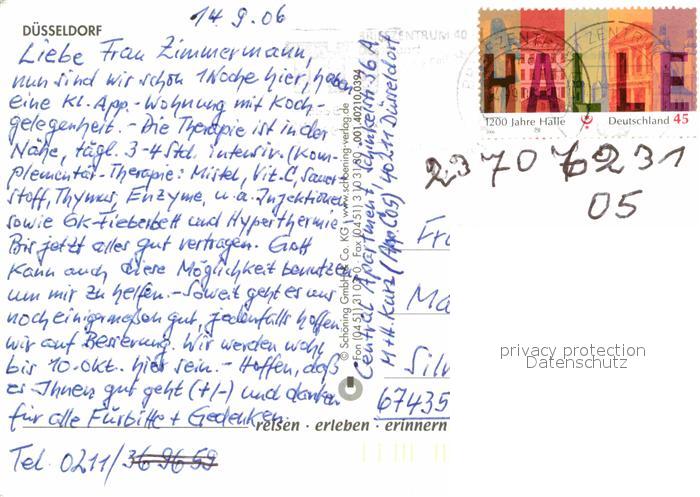 14.9.06
DÜSSELDORF
Liebe Frau Zimmermann,
nun sind wir schon 1 Woche hier, haben
eine Kl. App.-Wohnung mit Koch-
gelegenheit. - Die Therapie ist in der
Nähe, tägl. 3-4 Std. intensiv. (Kom-
plementär-Therapie: Mistel, Vit. C, Sauer-
stoff, Thymus, Enzyme, u.a. Injektionen
sowie GK-Fieberbett und Hyperthermie.
Bis jetzt alles gut vertragen. Gott
kann auch diese Möglichkeit benutzen
um mir zu helfen. - Soweit geht es uns
noch einigermaßen gut, jedenfalls hoffen
wir auf Besserung. Wir werden wohl
bis 10. Okt. hier sein. - Hoffen, daß
es Ihnen gut geht (+/-) und danken
für alle Fürbitte + Gedenken.
Tel. 0211/369659
reisen · erleben · erinnern
© Schöning GmbH & Co. KG · www.schoening-verlag.de
Fon (0451) 31 03-0 · Fax (0451) 310 31 80 · 001.40210.0394
Central Apartment, 36A
M+H. Kurz (App. C05) 40211 Düsseldorf
BRIEFZENTRUM 40
HALLE
1200 Jahre Halle Deutschland 45
237076231
05
Fr
Ma
Silv
67435
privacy protection
Datenschutz